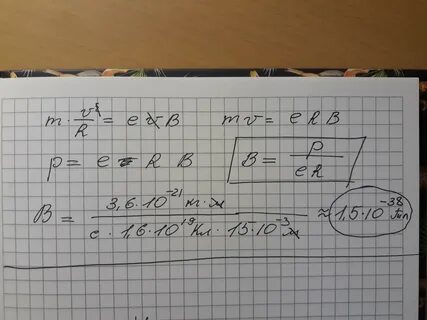 m · v²/R = e v B   m v = e R B
p = e R B   B = p/eR
B = 3,6 · 10⁻²¹ кг · м / с · 1,6 · 10¹⁹ Кл · 15 · 10⁻³ м ≈ 1,5 · 10⁻³⁸ Тл